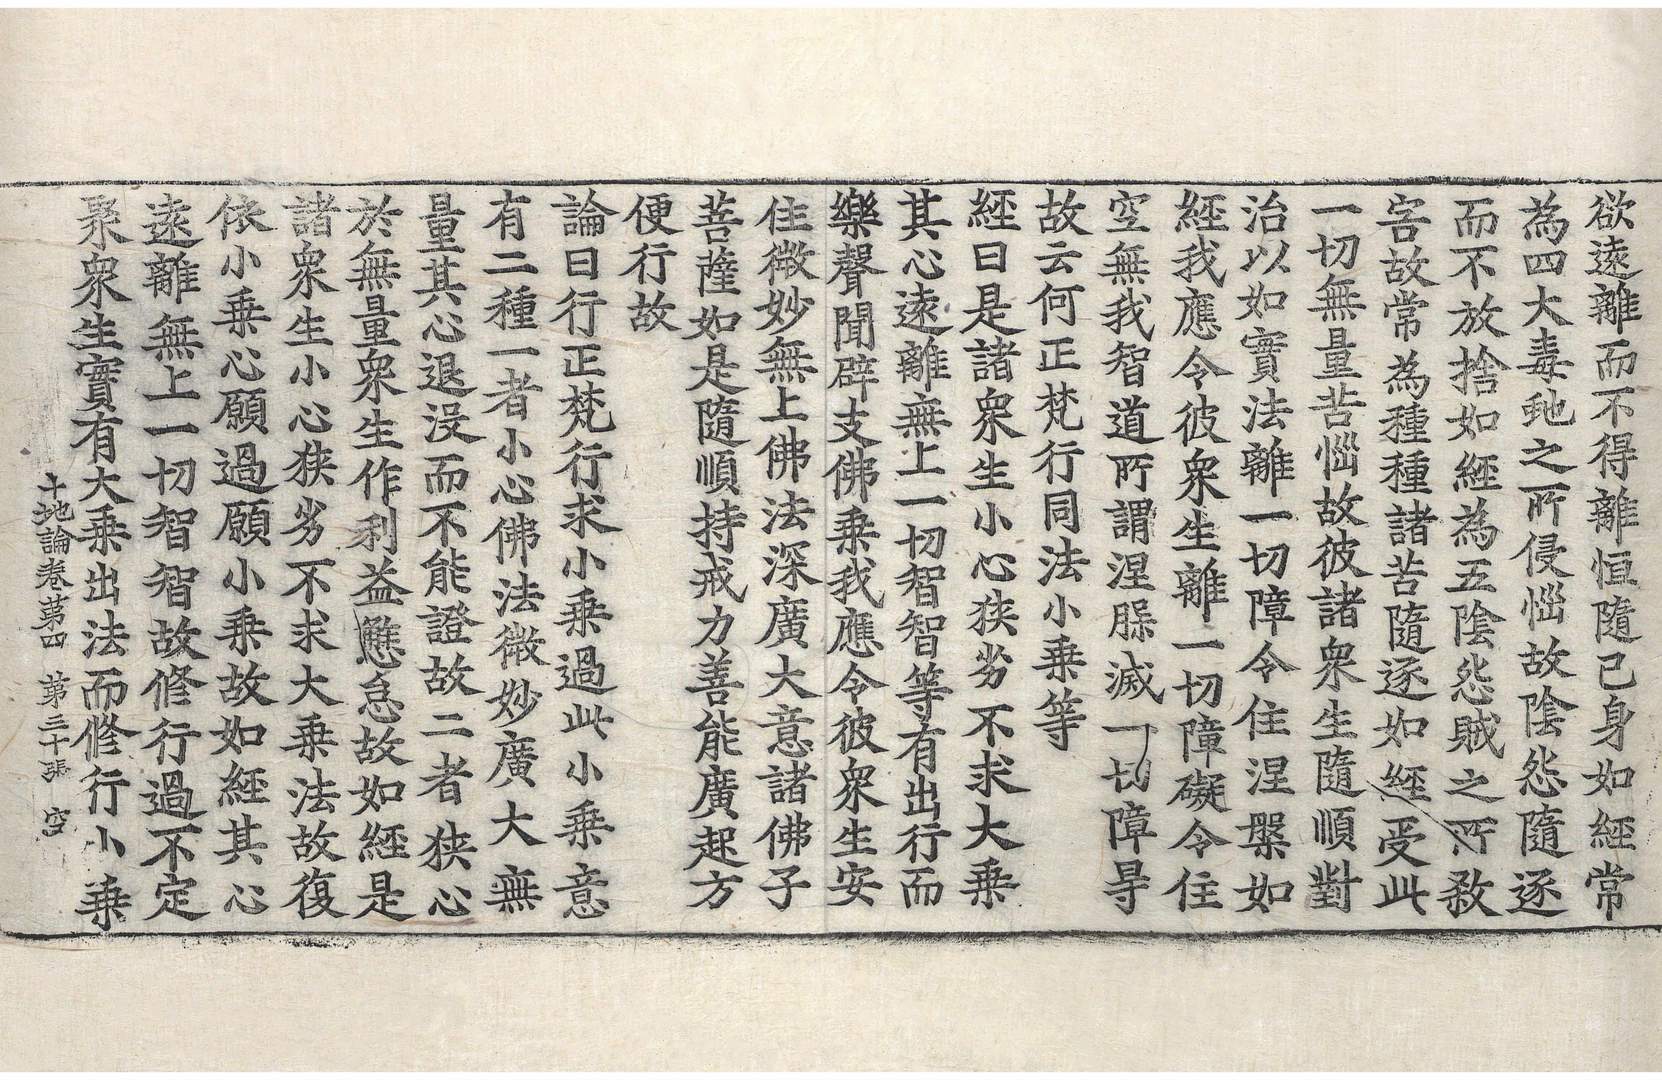 欲遠離而不得離恒隨己身如經常
為四大毒虵之所侵惱故陰怨隨逐
而不放捨如經為五陰怨賊之所殺
害故常為種種諸苦隨逐如經受此
一切無量苦惱故彼諸衆生隨順對
治以如實法離一切障令住涅槃如
經我應令彼衆生離一切障礙令住
空無我智道所謂涅槃滅一切障㝵
故云何正梵行同法小乗等
經曰是諸衆生小心狹劣不求大乗
其心遠離無上一切智智等有出行而
樂聲聞辟支佛乗我應令彼衆生安
住微妙無上佛法深廣大意諸佛子
菩薩如是隨順持戒力善能廣起方
便行故
論曰行正梵行求小乗過此小乗意
有二種一者小心佛法微妙廣大無
量其心退没而不能證故二者狹心
於無量衆生作利益懈怠故如經是
諸衆生小心狹劣不求大乗法故復
依小乗心願過願小乗故如經其心
遠離無上一切智智故修行過不定
聚衆生實有大乗出法而修行小乗
十地論卷第四 第三十張 空